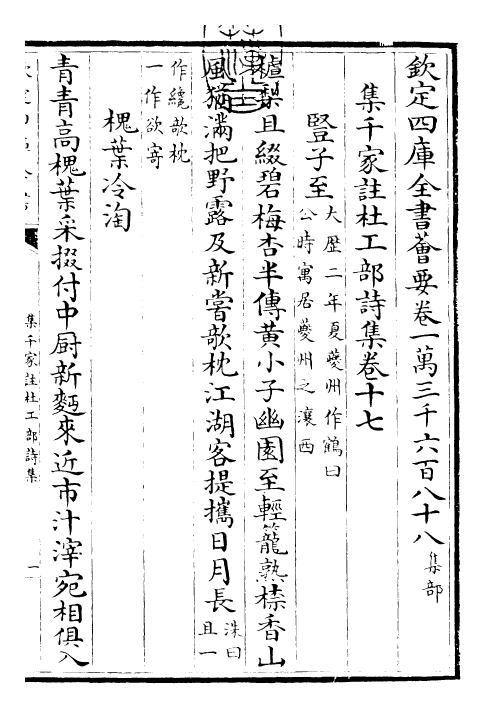 欽定四庫全書薈要卷一萬三千六百八十八集部
集千家註杜工部詩集卷十七
豎子至大歴二年夏夔州作鶴曰公時寓居夔州之瀼西
樝梨且綴碧梅杏半傳黄小子幽園至輕籠熟㮈香山
風猶滿把野露及新嘗欹枕江湖客提攜日月長洙曰且一
作纔欹枕一作欲寄
槐葉冷淘
青青高槐葉采掇付中厨新麪來近市汁滓宛相俱入
集千家註杜工部詩集
一